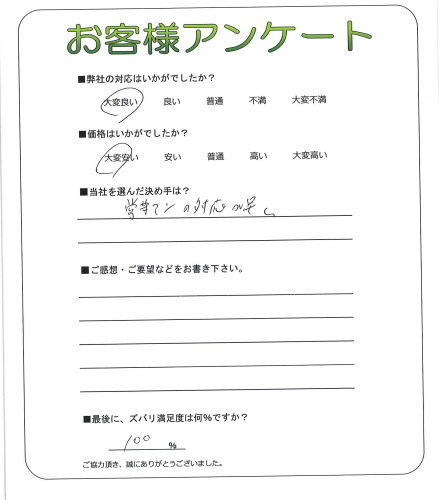 お客様アンケート
■弊社の対応はいかがでしたか?
大変良い 良い 普通 不満 大変不満
■価格はいかがでしたか?
大変安い 安い 普通 高い 大変高い
■当社を選んだ決め手は?
営業マンの対応が早く。
■ご感想・ご要望などをお書き下さい。
■最後に、ズバリ満足度は何%ですか?
100 %
ご協力頂き、誠にありがとうございました。